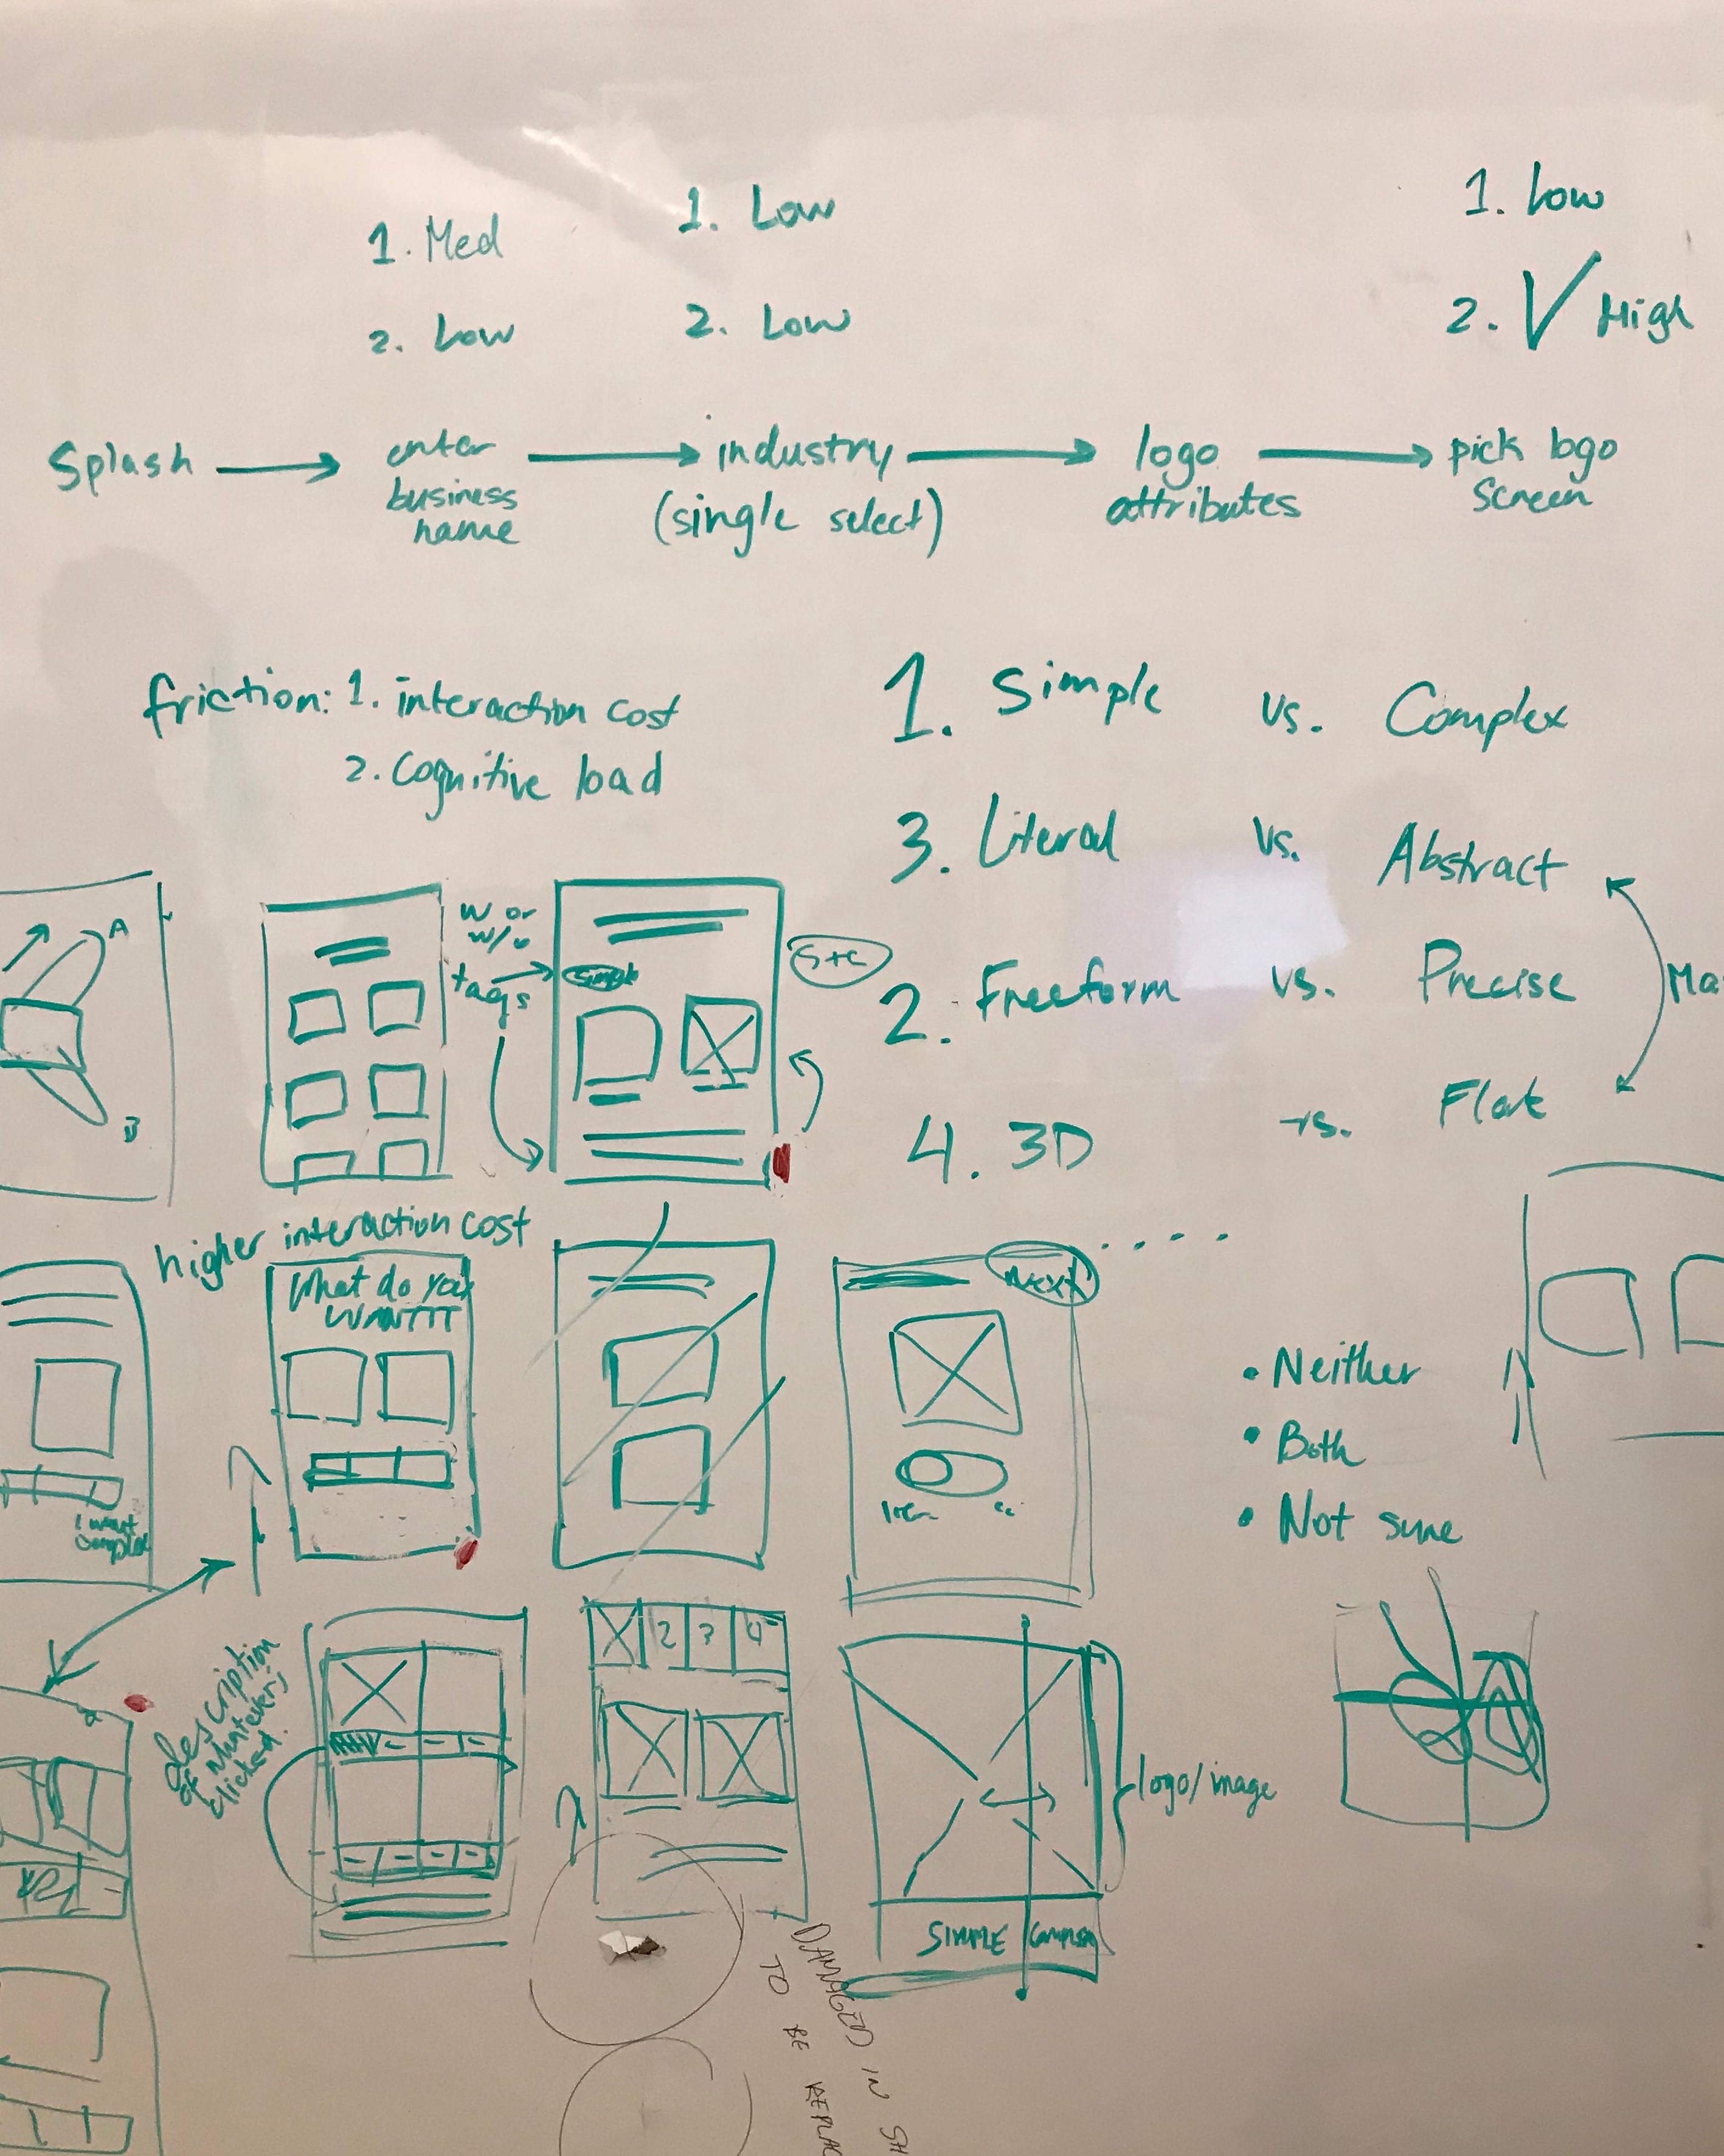 1. Med
2. Low
1. Low
2. Low
1. Low
2. √ High
Splash
enter
business
name
industry
(single select)
logo
attributes
pick logo
screen
friction: 1. interaction cost
2. Cognitive load
1. Simple vs. Complex
3. Literal vs. Abstract
2. Freeform vs. Precise
4. 3D vs. Flat
Ma
A
B
w or
w/o
tags
simple
S+C
higher interaction cost
What do you
WANTTT
Next
I want
complex
• Neither
• Both
• Not sure
description
of whatever's
clicked.
2 3 4
logo/image
SIMPLE Complex
DAMAGED IN SH
TO BE REPLAC